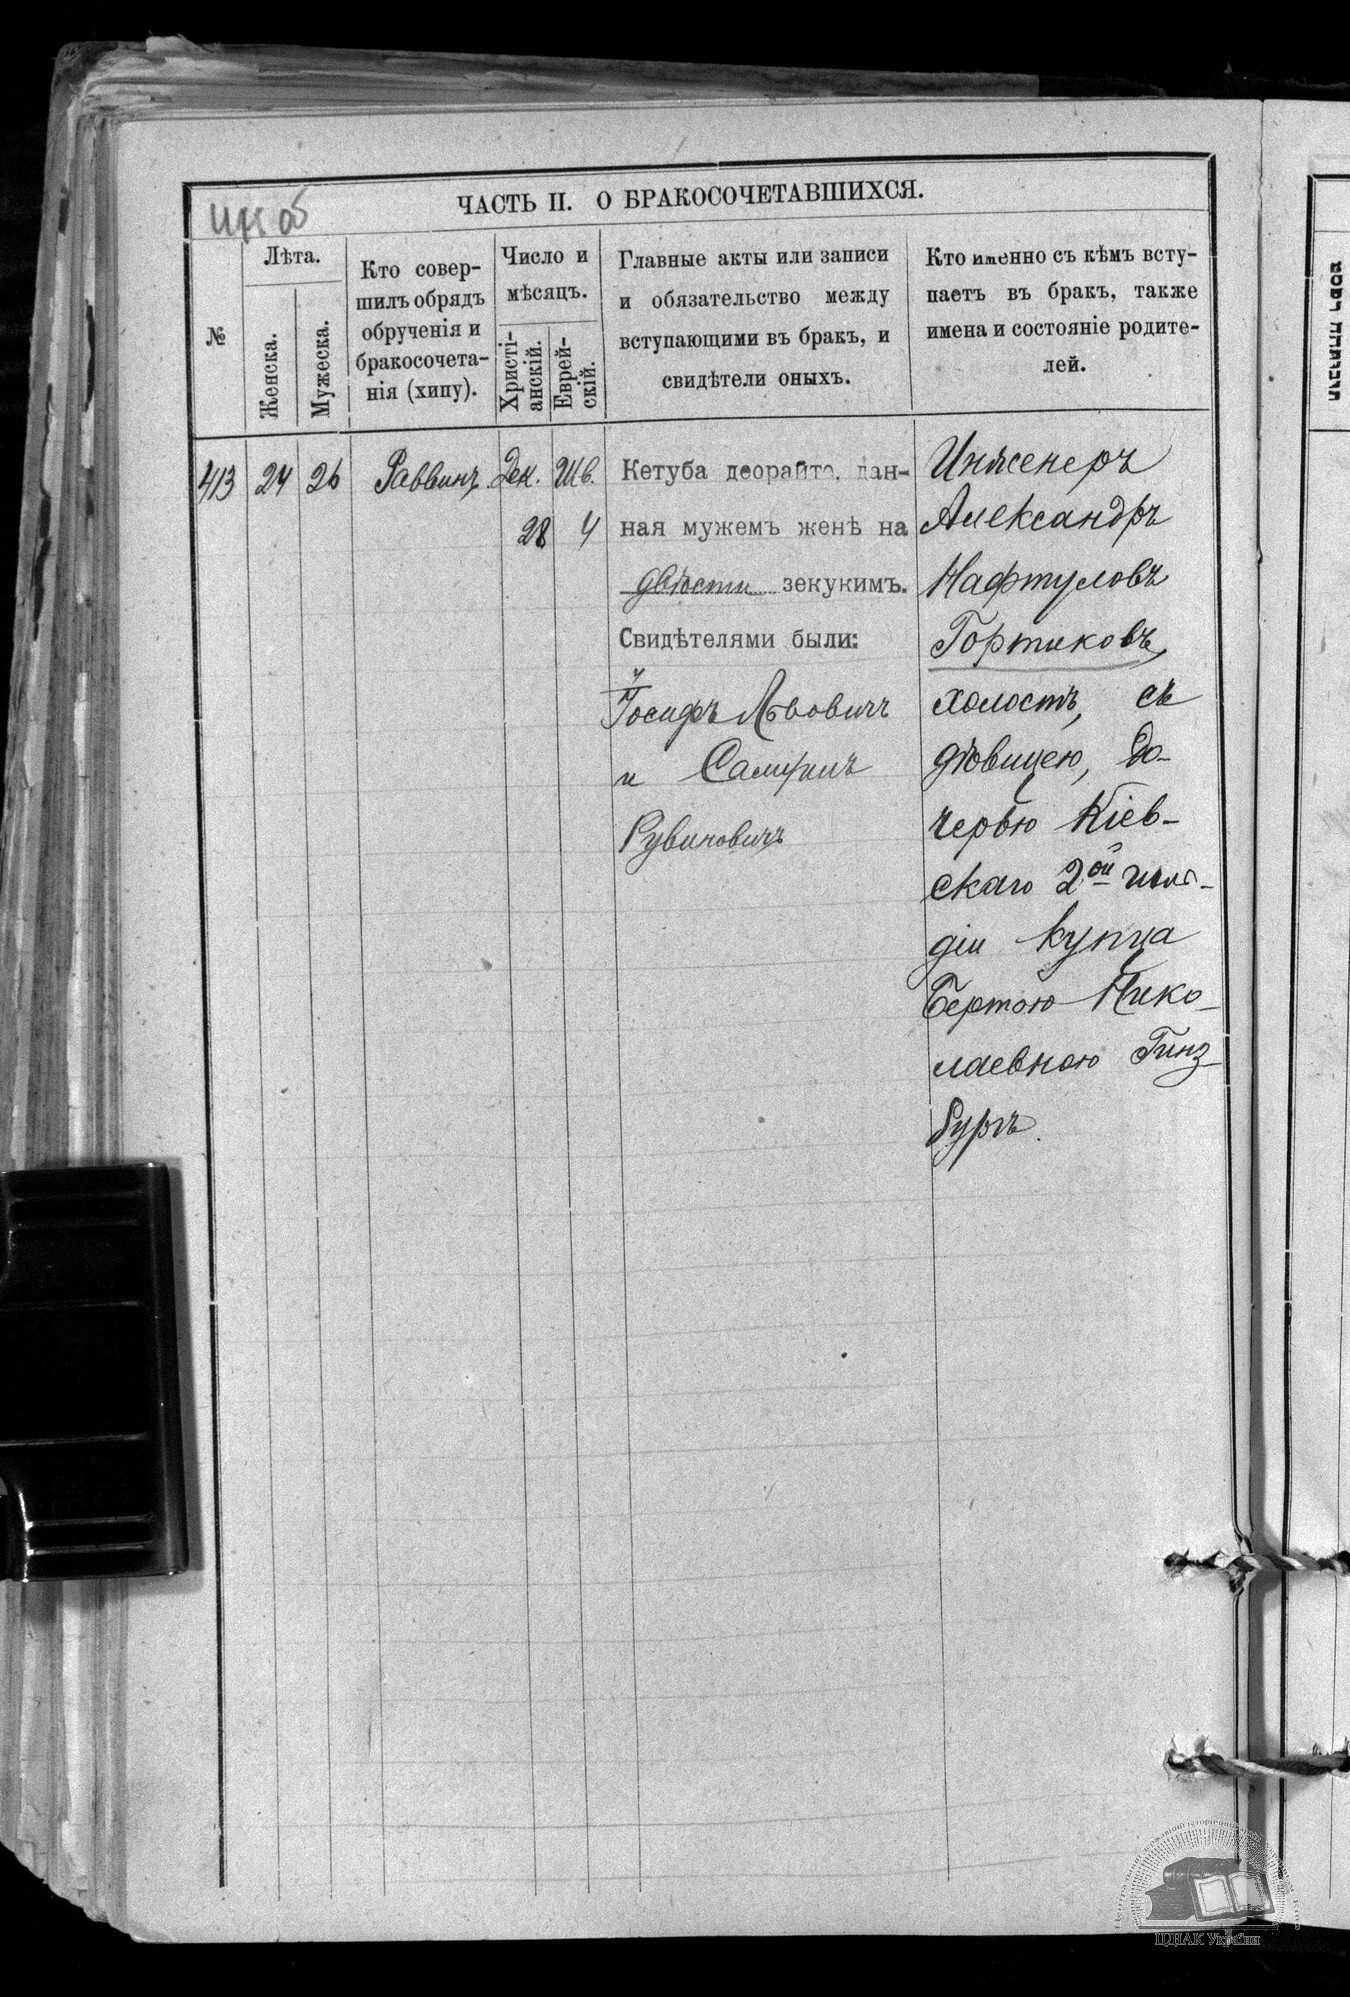 ЧАСТЬ II. О БРАКОСОЧЕТАВШИХСЯ.
№
Лѣта.
Женска.
Мужеска.
Кто совер-
шилъ обрядъ
обрученія и
бракосочета-
нія (хипу).
Число и
мѣсяцъ.
Христі-
анскій.
Еврей-
скій.
Главные акты или записи
и обязательство между
вступающими въ бракъ, и
свидѣтели оныхъ.
Кто именно съ кѣмъ всту-
паетъ въ бракъ, также
имена и состояніе родите-
лей.
413
24
26
Раввинъ
Дек.
28
Шв.
4
Кетуба деорайто, дан-
ная мужемъ женѣ на
двѣсти зекукимъ.
Свидѣтелями были:
Іосифъ Львовичъ
и
Рувиновичъ
Инженеръ
Александръ
Нафтуловъ
Гортиковъ,
холостъ, съ
дѣвицею, до-
черью Кіев-
скаго 2ой гиль-
діи купца
Бертою Нико-
лаевною Гинз-
бургъ.
ЦДІАК України